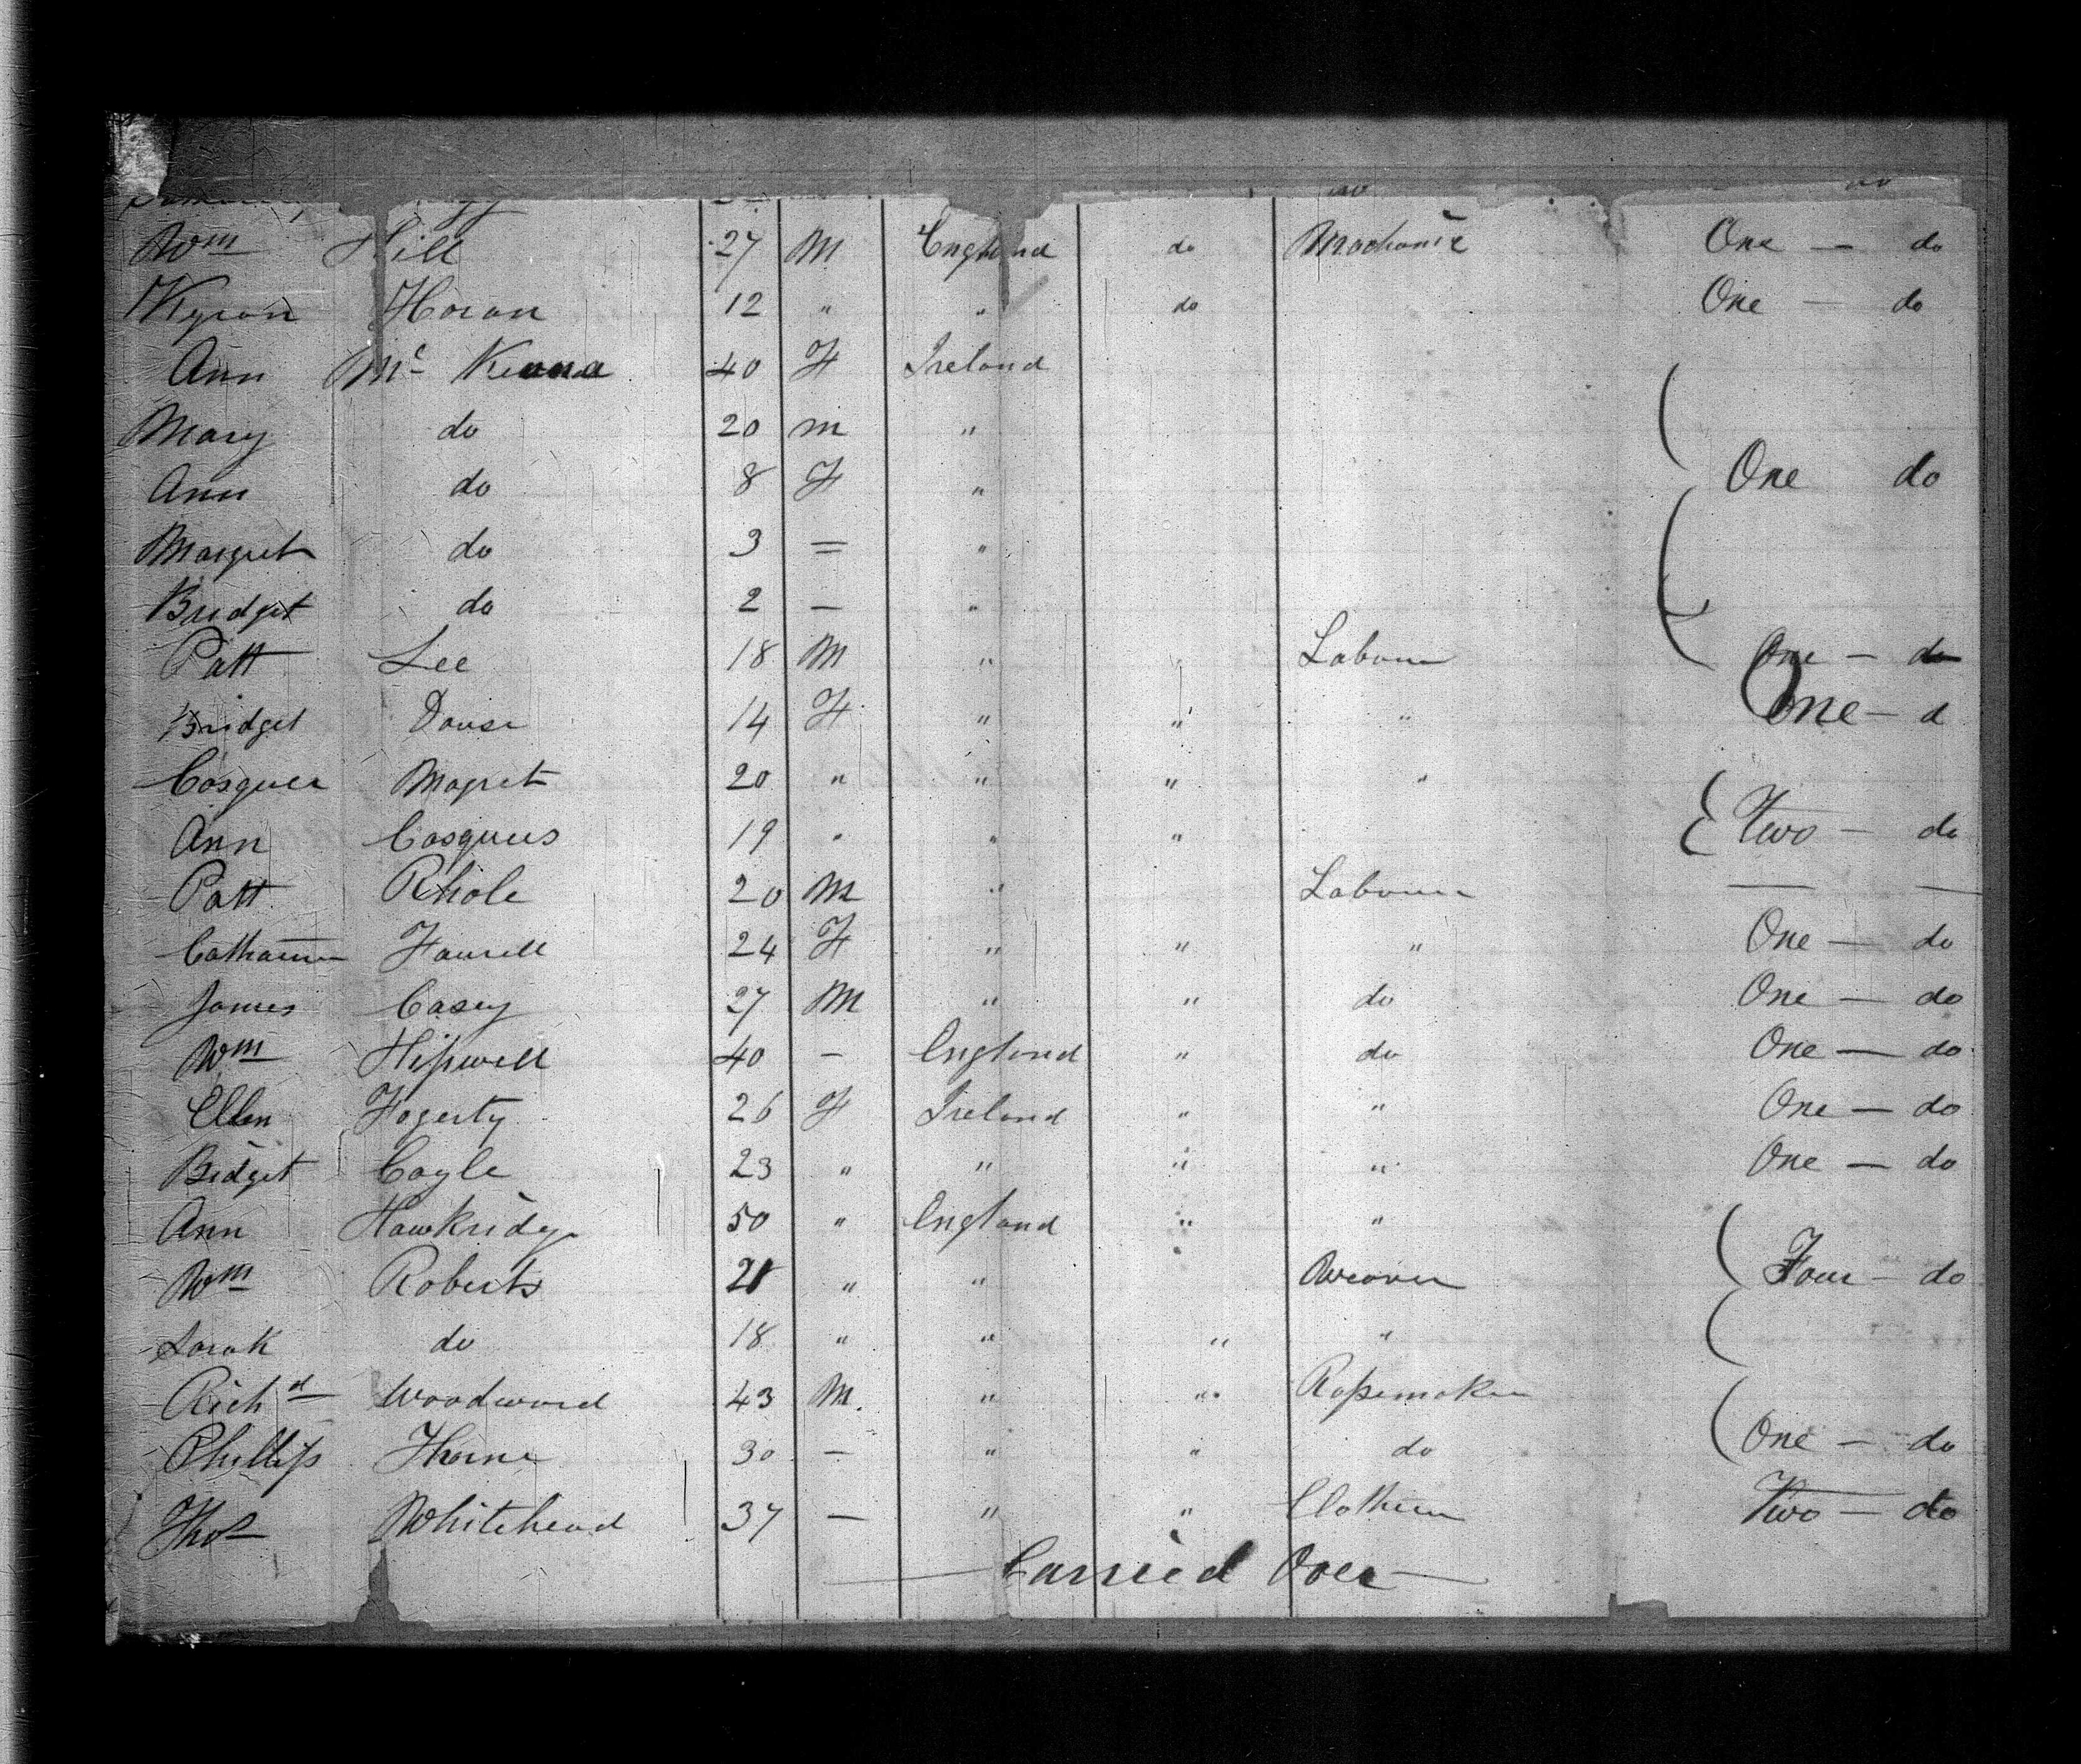 Wm Hill 27 M England do Mechanic One — do
Kyron Horan 12 " " do One — do
Ann Mc Kenna 40 F Ireland
Mary do 20 m "
Ann do 8 F " One do
Margret do 3 = "
Bridget do 2 — "
Patt Lee 18 M " " Labourer One — do
Bridget 14 F " " " One — d
Cosgues Magret 20 " " " "
Ann Cosgues 19 " " " Two — do
Patt Rhole 20 M " Labourer — —
Catharine Farrell 24 F " " " One — do
James Casey 27 M " " do One — do
Wm Hipwell 40 — England " do One — do
Ellen Fogerty 26 F Ireland " " One — do
Bridget Coyle 23 " " " " One — do
Ann Hawkridge 50 " England " "
Wm Roberts 21 " " Weaver Four — do
Sarah do 18 " " " "
Richd Woodward 43 M. " " Ropemaker
Phillip Thorne 30 — " " do One — do
Thos Whitehead 37 — " " Clothier Two — do
— Carried Over —